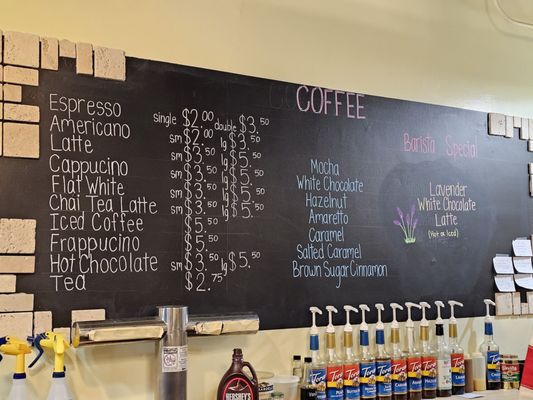 COFFEE
Espresso single $2.00 double $3.50
Americano sm $2.00 lg $3.50
Latte sm $3.50 lg $5.50
Cappucino sm $3.50 lg $5.50
Flat White sm $3.50 lg $5.50
Chai Tea Latte sm $3.50 lg $5.50
Iced Coffee $3.50
Frappucino $5.50
Hot Chocolate sm $3.50 lg $5.50
Tea $2.75
Mocha
White Chocolate
Hazelnut
Amaretto
Caramel
Salted Caramel
Brown Sugar Cinnamon
Barista Special
Lavender
White Chocolate
Latte
(Hot or Iced)
HERSHEY'S
Torani
Torani
Torani
Torani
Torani
Torani
Torani
Torani
Torani
Torani